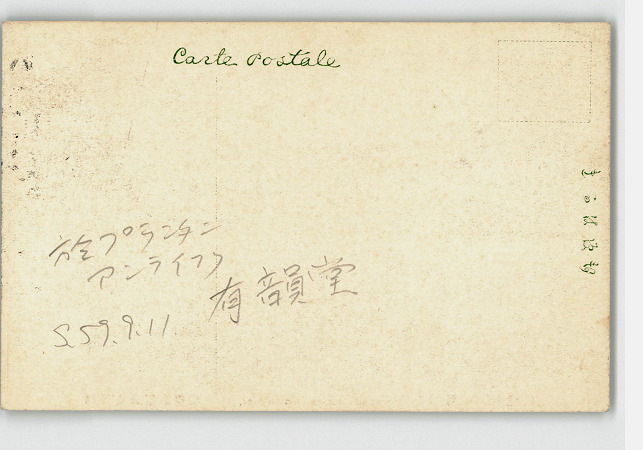 Carte Postale
於プランタン
アンライフク
有韻堂
S.59.9.11.